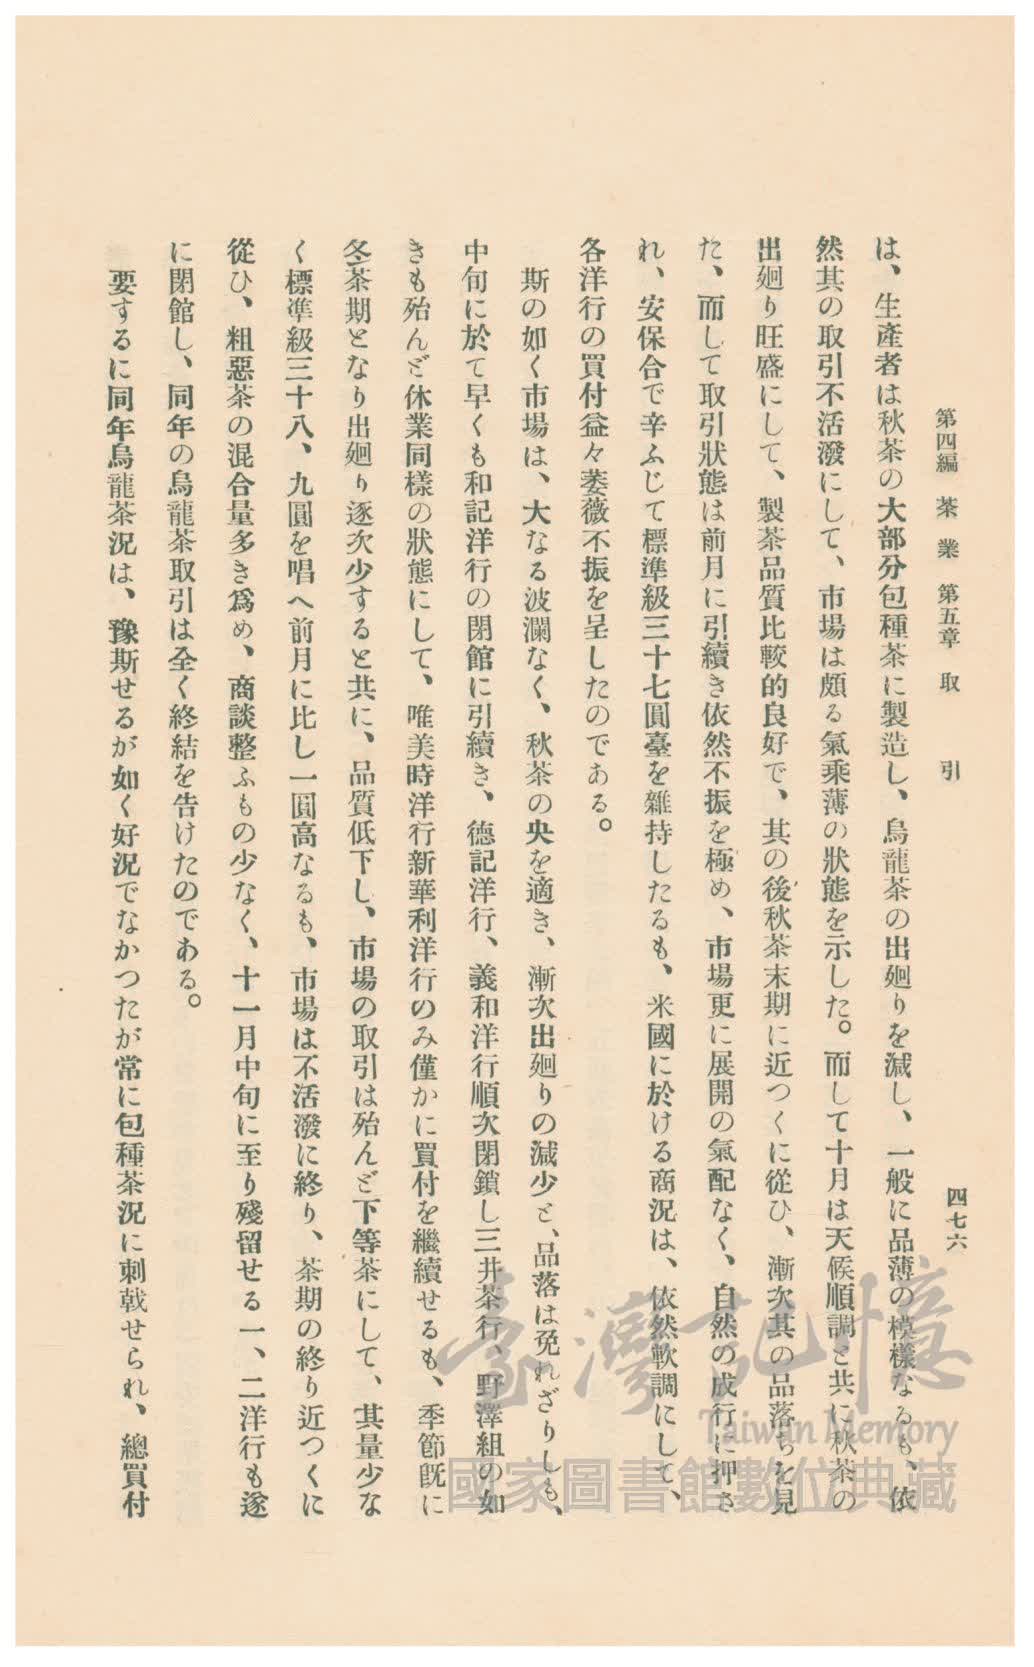 第四編　茶業　第五章　取引
四七六
は、生產者は秋茶の大部分包種茶に製造し、烏龍茶の出廻りを減し、一般に品薄の模樣なるも、依
然其の取引不活潑にして、市場は頗る氣乘薄の狀態を示した。而して十月は天候順調と共に秋茶の
出廻り旺盛にして、製茶品質比較的良好で、其の後秋茶末期に近つくに從ひ、漸次其の品落ちを見
た、而して取引狀態は前月に引續き依然不振を極め、市場更に展開の氣配なく、自然の成行に押さ
れ、安保合で辛ふじて標準級三十七圓臺を維持したるも、米國に於ける商況は、依然軟調にして、
各洋行の買付益々萎薇不振を呈したのである。
斯の如く市場は、大なる波瀾なく、秋茶の央を適き、漸次出廻りの減少と、品落は免れざりしも、
中旬に於て早くも和記洋行の閉館に引續き、德記洋行、義和洋行順次閉鎖し三井茶行、野澤組の如
きも殆んど休業同樣の狀態にして、唯美時洋行新華利洋行のみ僅かに買付を繼續せるも、季節旣に
冬茶期となり出廻り逐次少すると共に、品質低下し、市場の取引は殆んど下等茶にして、其量少な
く標準級三十八、九圓を唱へ前月に比し一圓高なるも、市場は不活潑に終り、茶期の終り近つくに
從ひ、粗惡茶の混合量多き爲め、商談整ふもの少なく、十一月中旬に至り殘留せる一、二洋行も遂
に閉館し、同年の烏龍茶取引は全く終結を告けたのである。
要するに同年烏龍茶況は、豫斯せるが如く好況でなかつたが常に包種茶況に刺戟せられ、總買付
臺灣記憶
Taiwan Memory
國家圖書館數位典藏